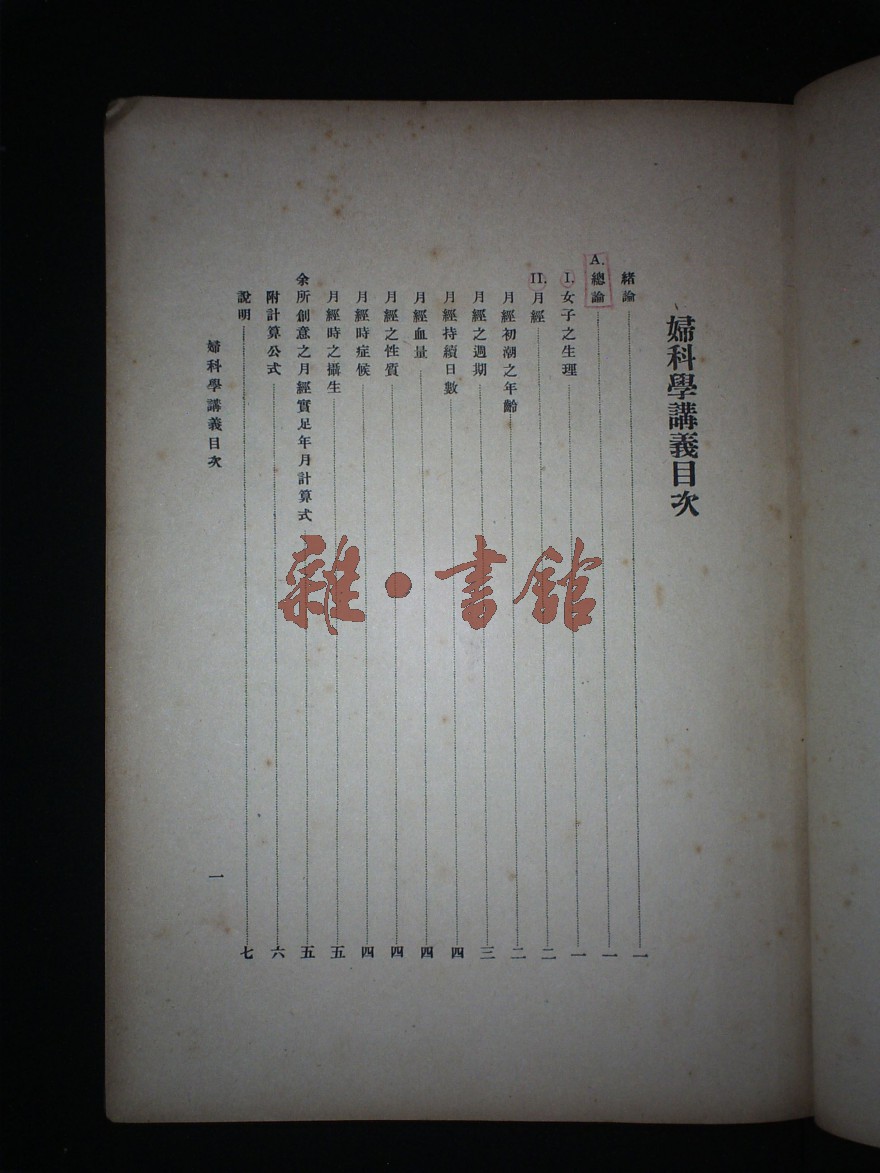 婦科學講義目次
緒論 一
A. 總論 一
I. 女子之生理 一
II. 月經 二
月經初潮之年齡 二
月經之週期 三
月經持續日數 四
月經血量 四
月經之性質 四
月經時症候 四
月經時之攝生 五
余所創意之月經實足年月計算式 五
附計算公式 六
說明 七
婦科學講義目次 一
雜·書館